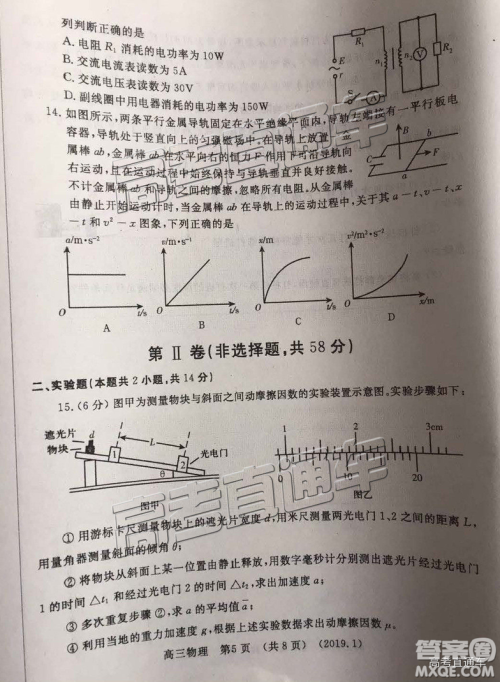 列判断正确的是
A. 电阻 R₁ 消耗的电功率为 10W
B. 交流电流表读数为 5A
C. 交流电压表读数为 30V
D. 副线圈中用电器消耗的电功率为 150W
R₁
E
r
n₁
n₂
V
R₂
S
A
14. 如图所示,两条平行金属导轨固定在水平绝缘平面内,导轨左端接有一平行板电
容器,导轨处于竖直向上的匀强磁场中,在导轨上放置一金
属棒 ab,金属棒 ab 在水平向右的恒力 F 作用下可沿导轨向
右运动,且在运动中始终保持与导轨垂直并良好接触。
不计金属棒 ab 和导轨之间的摩擦,忽略所有电阻,从金属棒
由静止开始运动计时,当金属棒 ab 在导轨上的运动过程中,关于其 a-t、v-t、x
-t 和 v²-x 图象,下列正确的是
B
b
C
F
a
a/m·s⁻²
v/m·s⁻¹
x/m
v²/m²·s⁻²
O
t/s
O
t/s
O
t/s
O
x/m
A
B
C
D
第 Ⅱ 卷(非选择题,共 58 分)
二、实验题(本题共 2 小题,共 14 分)
15. (6 分) 图甲为测量物块与斜面之间动摩擦因数的实验装置示意图,实验步骤如下:
遮光片
d
物块
1
L
光电门
2
θ
图甲
1
2
3cm
0
10
20
图乙
① 用游标卡尺测量物块上的遮光片宽度 d,用米尺测量两光电门 1、2 之间的距离 L,
用量角器测量斜面的倾角 θ;
② 将物块从斜面上某一位置由静止释放,用数字毫秒计分别测出遮光片经过光电门
1 的时间 △t₁ 和经过光电门 2 的时间 △t₂,求出加速度 a;
③ 多次重复步骤 ②,求 a 的平均值 a̅;
④ 利用当地的重力加速度 g,根据上述实验数据求出动摩擦因数 μ。
高三物理 第5页 (共 8 页) (2019.1)
高考直通车
高考直通车
高考直通车
答案圈